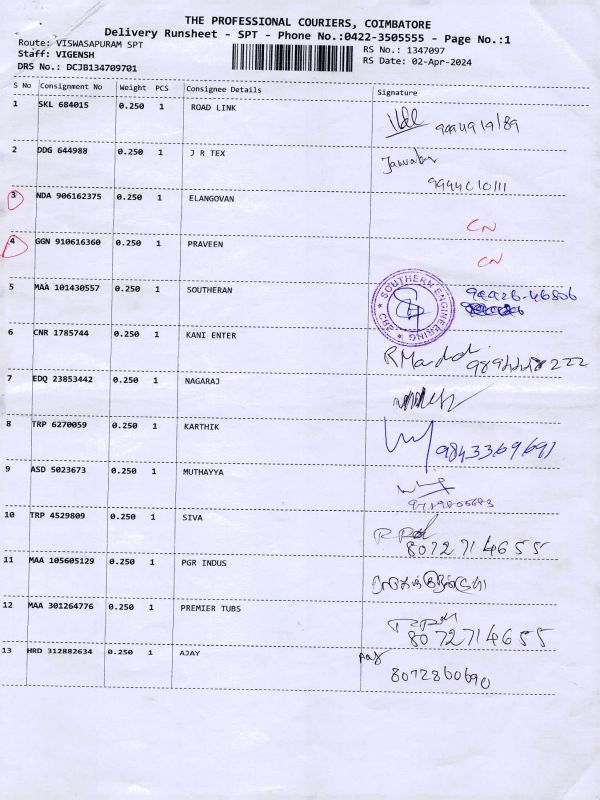 THE PROFESSIONAL COURIERS, COIMBATORE
Delivery Runsheet - SPT - Phone No.:0422-3505555 - Page No.:1
Route: VISWASAPURAM SPT
RS No.: 1347097
Staff: VIGENSH
RS Date: 02-Apr-2024
DRS No.: DCJB134709701
S No Consignment No Weight PCS Consignee Details Signature
1 SKL 684015 0.250 1 ROAD LINK
2 DDG 644988 0.250 1 J R TEX
3 NDA 906162375 0.250 1 ELANGOVAN CN
4 GGN 910616360 0.250 1 PRAVEEN CN
5 MAA 101430557 0.250 1 SOUTHERAN
* SOUTHERN ENGINEERING * CBE
6 CNR 1785744 0.250 1 KANI ENTER
7 EDQ 23853442 0.250 1 NAGARAJ
8 TRP 6270059 0.250 1 KARTHIK 9843369691
9 ASD 5023673 0.250 1 MUTHAYYA
10 TRP 4529809 0.250 1 SIVA
8072714655
11 MAA 105605129 0.250 1 PGR INDUS
12 MAA 301264776 0.250 1 PREMIER TUBS
8072714655
13 HRD 312882634 0.250 1 AJAY
8072860690